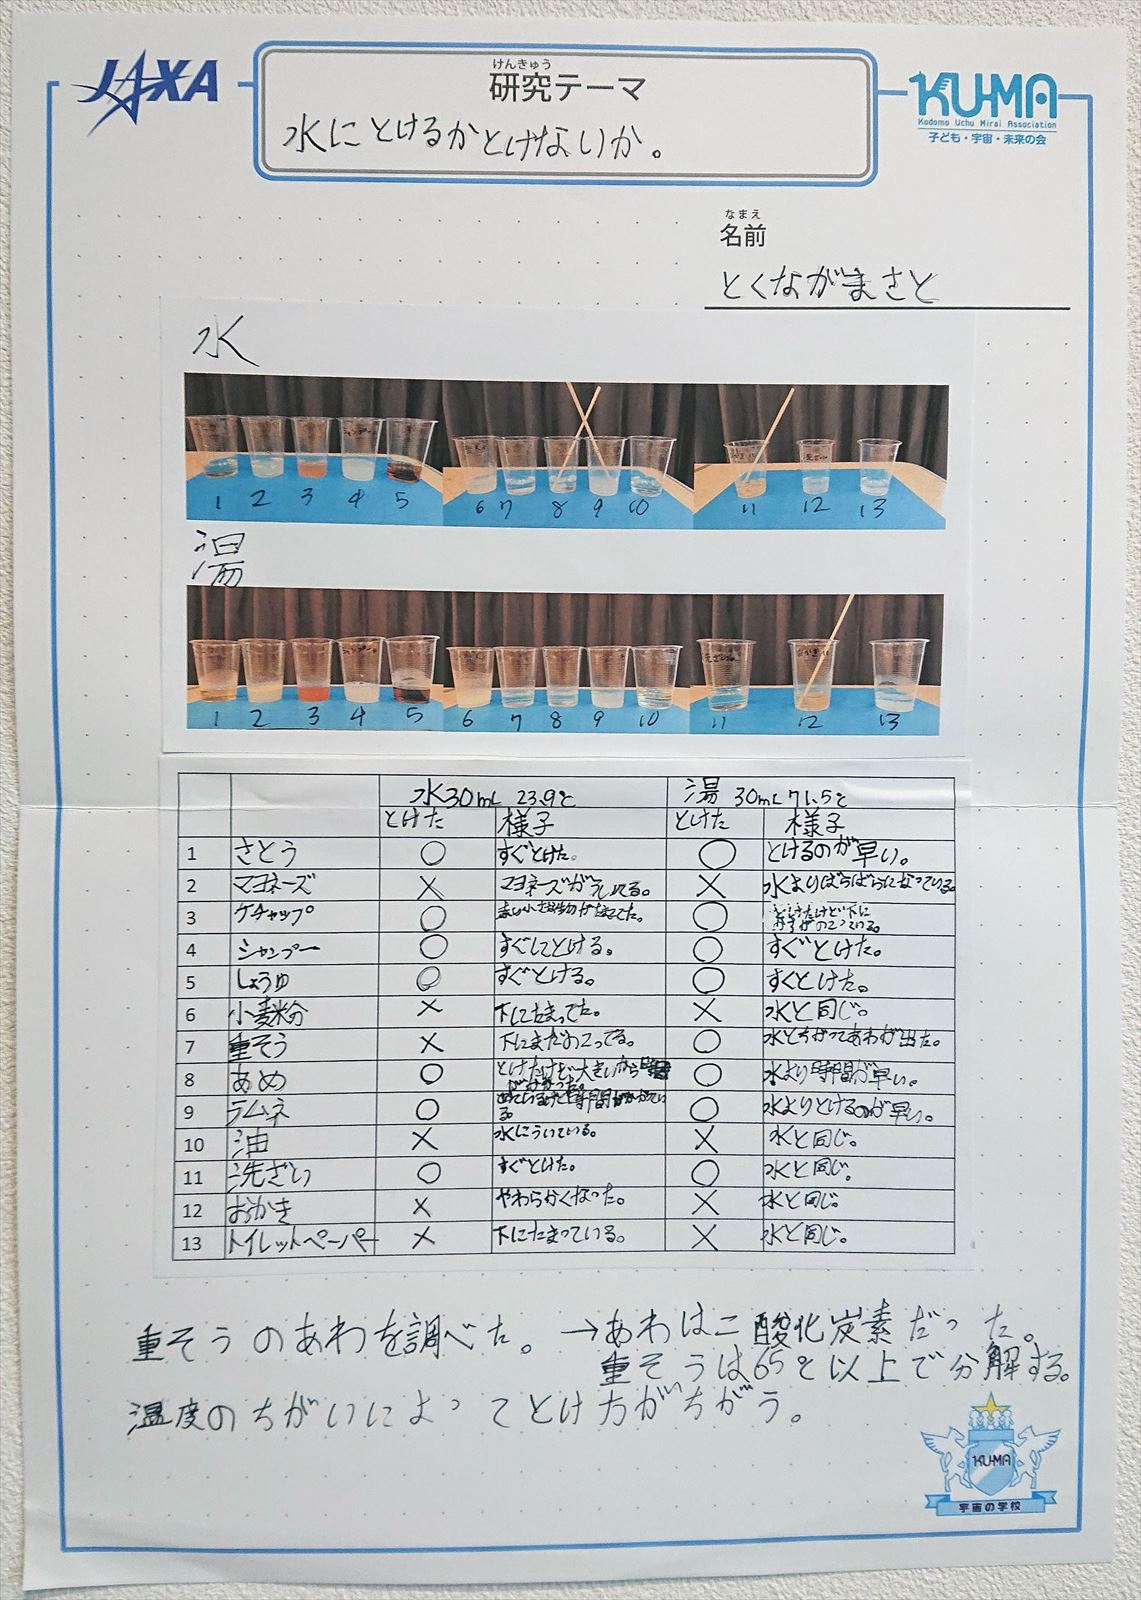 JAXA
けんきゅう
研究テーマ
水にとけるかとけないか。
KU-MA
Kodomo Uchu Mirai Association
子ども・宇宙・未来の会
なまえ
名前
とくながまさと
水
1 2 3 4 5 6 7 8 9 10 11 12 13
湯
1 2 3 4 5 6 7 8 9 10 11 12 13
水30mL 23.9℃ 湯 30mL 71.5℃
とけた 様子 とけた 様子
1 さとう ○ すぐとけた。 ○ とけるのが早い。
2 マヨネーズ × マヨネーズがういてる。 × 水よりばらばらになっている。
3 ケチャップ ○ ○ とけたけど下に
赤すがのこっている。
4 シャンプー ○ すぐにとける。 ○ すぐとけた。
5 しょうゆ ○ すぐとける。 ○ すぐとけた。
6 小麦粉 × 下にたまってた。 × 水と同じ。
7 重そう × 下にまだのこってる。 ○ 水とちがってあわが出た。
8 あめ ○ とけたけど大きいから時間
がかかった。 ○ 水より時間が早い。
9 ラムネ ○ 時間がかかってい
る。 ○ 水よりとけるのが早い。
10 油 × 水にういている。 × 水と同じ。
11 洗ざい ○ すぐとけた。 ○ 水と同じ。
12 おかき × やわらかくなった。 × 水と同じ。
13 トイレットペーパー × 下にたまっている。 × 水と同じ。
重そうのあわを調べた。→あわは二酸化炭素だった。
重そうは65℃以上で分解する。
温度のちがいによってとけ方がちがう。
KU-MA
宇宙の学校